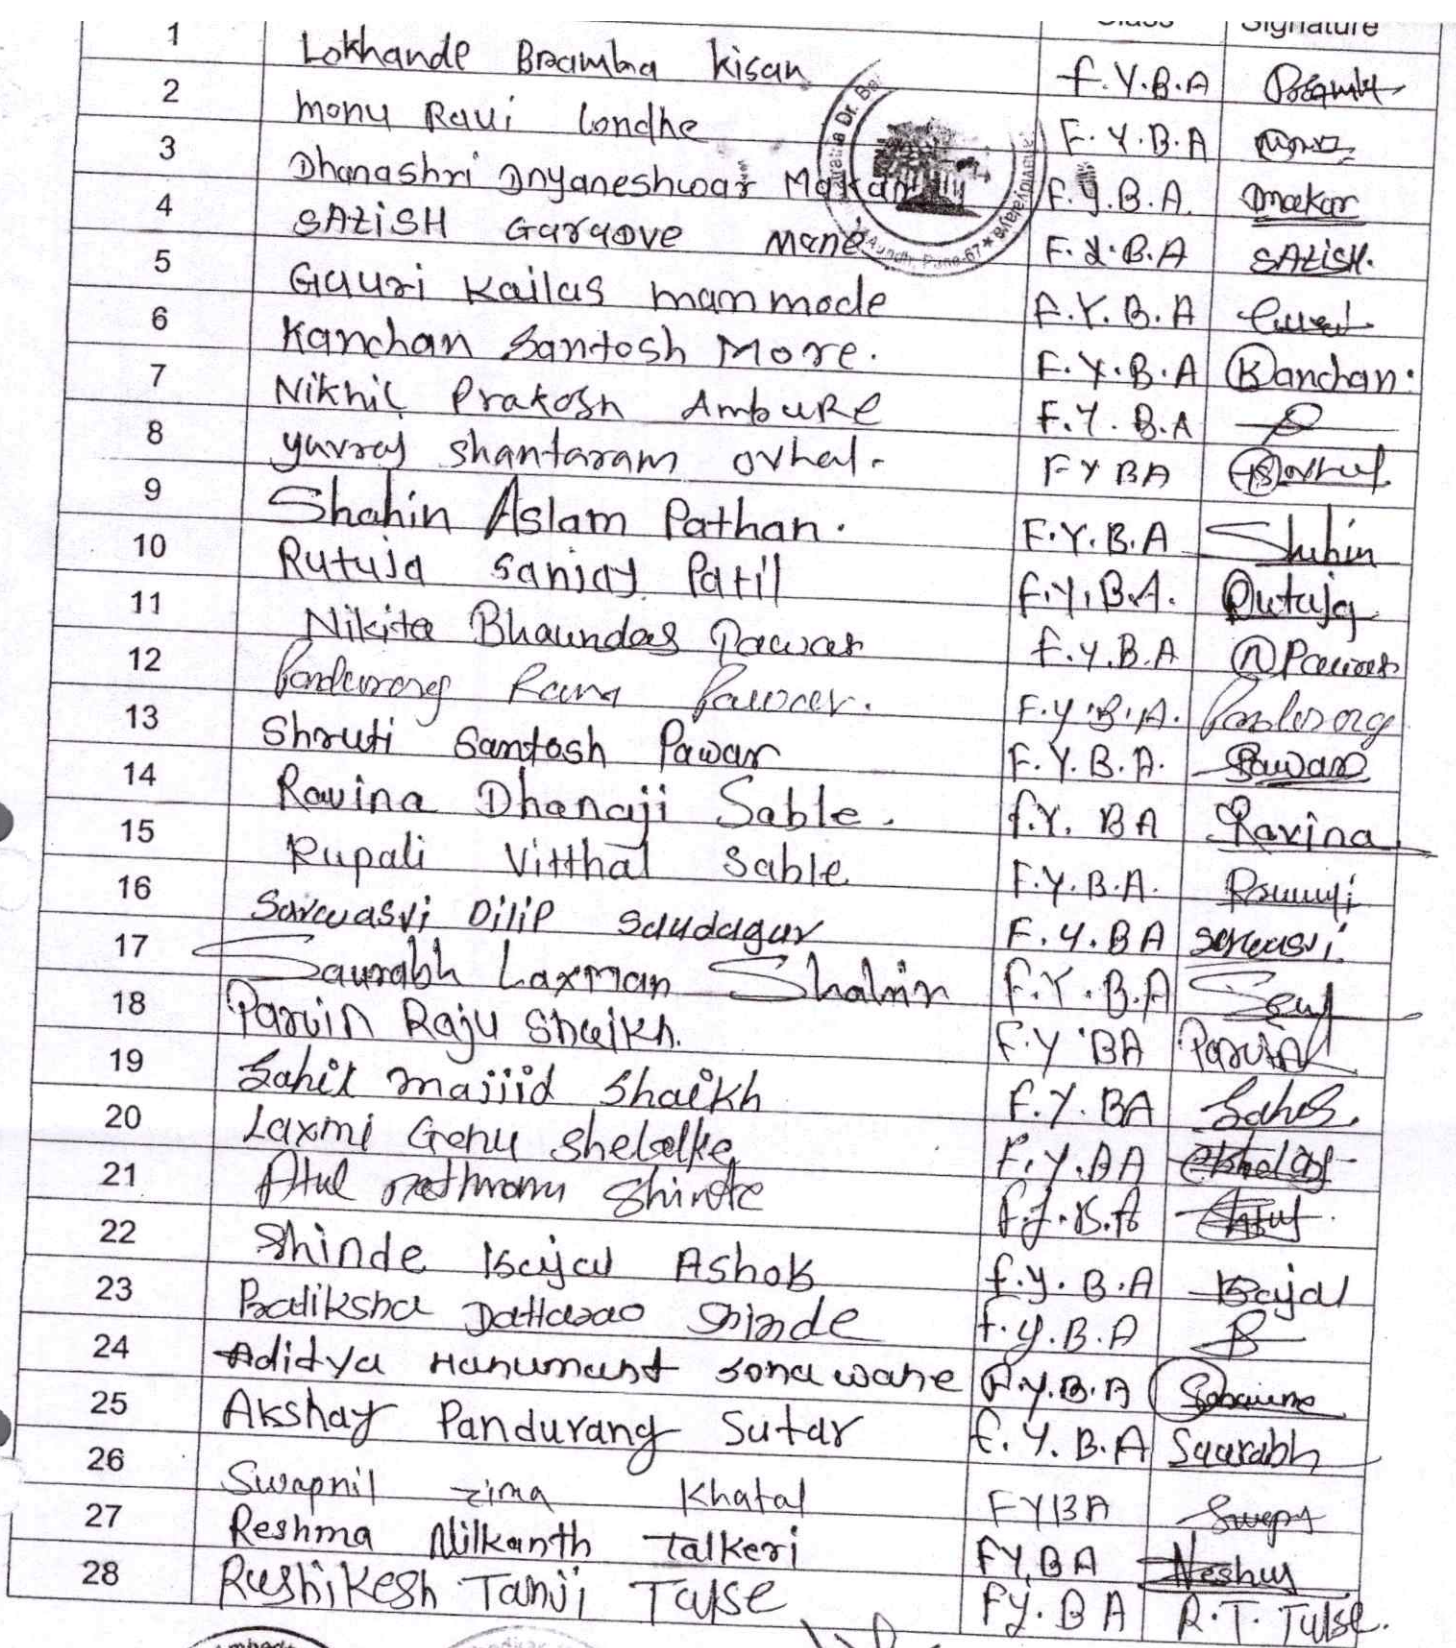 Class Signature
1 Lokhande Bramha Kisan F.Y.B.A
2 Monu Ravi Londhe F.Y.B.A
3 Dhanashri Dnyaneshwar Makar F.Y.B.A. Dmakar
4 SAtiSH mane F.Y.B.A SAtiSH.
5 Gauri Kailas manmode F.Y.B.A
6 Kanchan Santosh More. F.Y.B.A Kanchan.
7 Nikhil Prakash AmbuRe F.Y.B.A
8 yuvraj shantaram ovhal. FYBA ovhal
9 Shahin Aslam Pathan. F.Y.B.A Shahin
10 Rutuja Sanjay Patil F.Y.B.A. Rutuja
11 Nikita Bhaundas Pawar F.Y.B.A NPawar
12 Pandurang Rama Pawar. F.Y.B.A. Pandurang
13 Shruti Santosh Pawar F.Y.B.A. Pawar
14 Ravina Dhanaji Sable. F.Y.BA Ravina
15 Rupali Vitthal Sable F.Y.B.A.
16 Sarwasvi Dilip Saudagar F.Y.BA Sarwasvi
17 Saurabh Laxman F.Y.B.A
18 Parvin Raju Shaikh. F.Y BA Parvin
19 Sahil majjid Shaikh F.Y.BA
20 Laxmi Genu Shelalke F.Y.BA
21 Atul Shinde F.Y.B.A Atul
22 Shinde Kajal Ashok F.Y.B.A Kajal
23 Pratiksha Dattarao Shinde F.Y.B.A
24 Aditya Hanumant Sonawane F.Y.B.A
25 Akshay Pandurang Sutar F.Y.B.A Saurabh
26 Swapnil zima Khatal FYBA
27 Reshma Nilkanth Talkeri FY.BA
28 Rushikesh Tanji Tulse FY.BA R.T. Tulse.